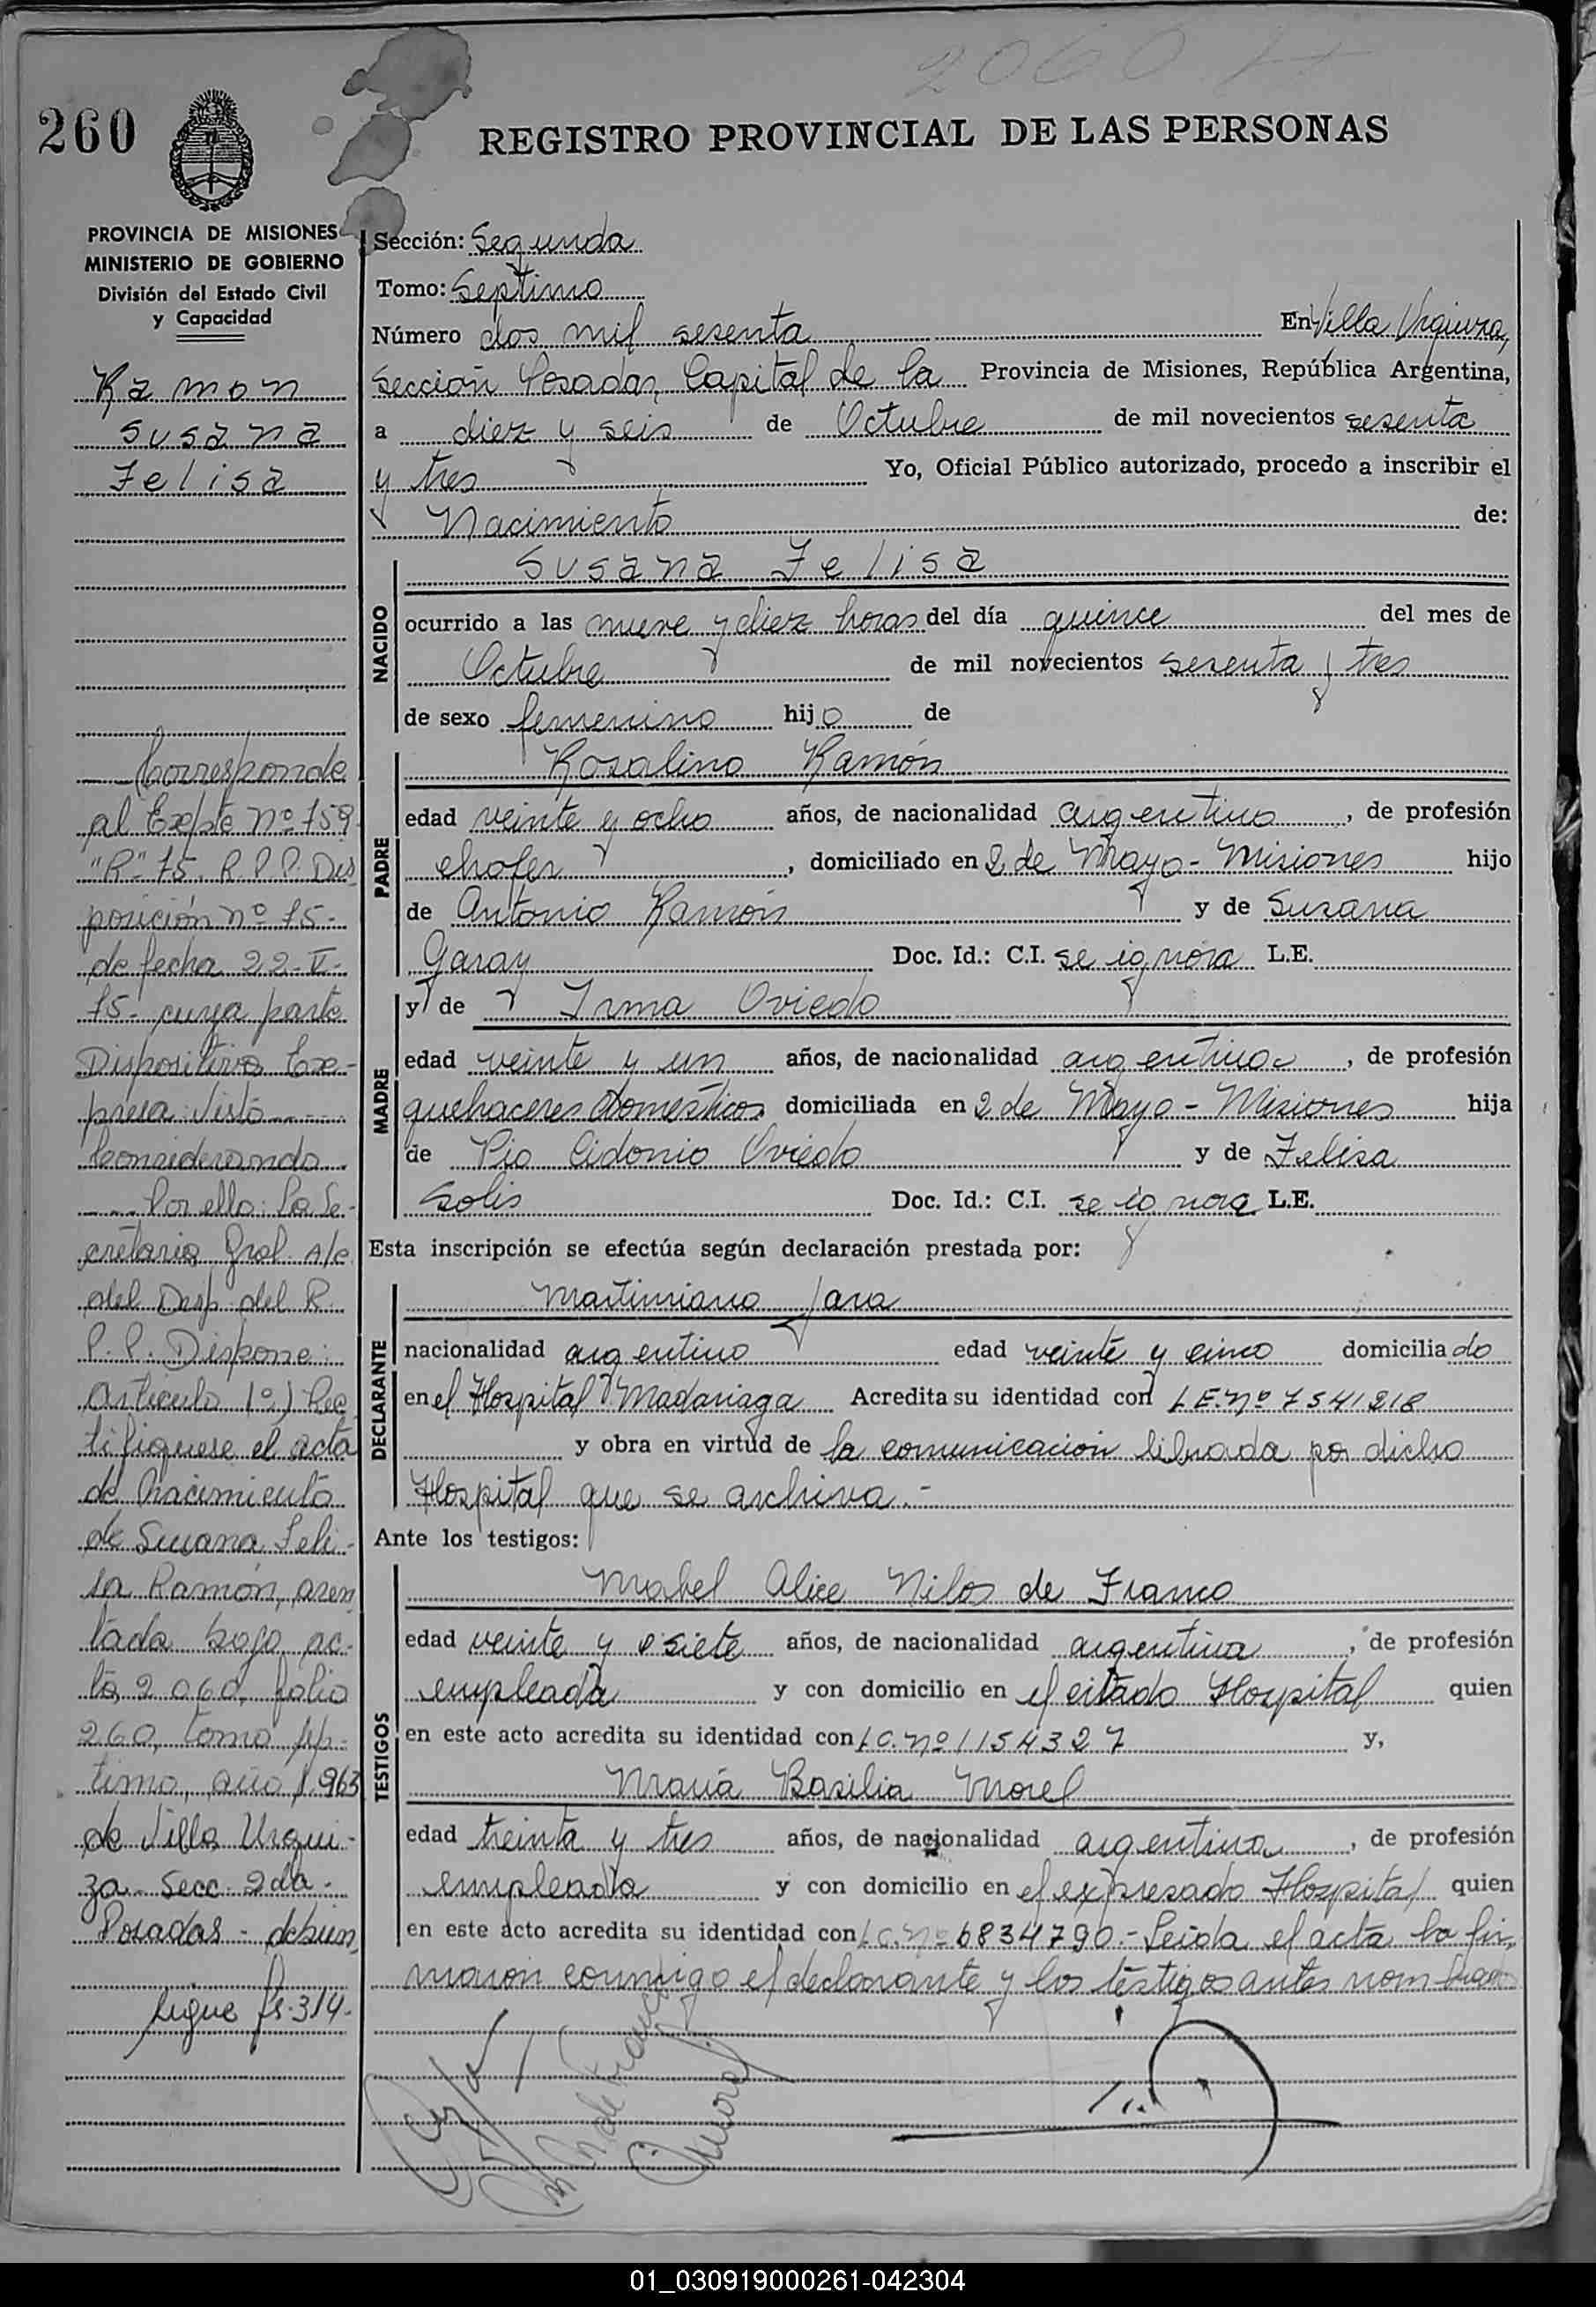 2060
260
REGISTRO PROVINCIAL DE LAS PERSONAS
PROVINCIA DE MISIONES
MINISTERIO DE GOBIERNO
División del Estado Civil
y Capacidad
Ramon
Susana
Felisa
Corresponde
al Expte nº 159
"R" 75. R. P. P. Dis
posición nº 75-
de fecha 22-V-
75- cuya parte
Dispositiva Exe-
presa: Visto
Considerando
Por ello: La Se-
cretaria Gral. A/c
del Desp. del R.
P. P. Dispone:
Artículo 1º) Rec
tifiquese el acta
de Nacimiento
de Susana Feli-
sa Ramón, asen
tada bajo ac-
ta 2060, folio
260, tomo sép-
timo, año 1.963
de Villa Urqui-
za - Secc. 2da -
Posadas - debien
sigue fs. 314-
Sección: Segunda
Tomo: Septimo
Número dos mil sesenta En Villa Urquiza,
Sección Posadas, Capital de la Provincia de Misiones, República Argentina,
a diez y seis de Octubre de mil novecientos sesenta
y tres Yo, Oficial Público autorizado, procedo a inscribir el
Nacimiento de:
NACIDO
Susana Felisa
ocurrido a las nueve y diez horas del día quince del mes de
Octubre de mil novecientos sesenta y tres
de sexo femenino hijo de
PADRE
Rosalino Ramón
edad veinte y ocho años, de nacionalidad argentino, de profesión
chofer, domiciliado en 2 de Mayo - Misiones hijo
de Antonio Ramón y de Susana
Garay Doc. Id.: C.I. se ignora L.E.
MADRE
y de Irma Oviedo
edad veinte y un años, de nacionalidad argentina, de profesión
quehaceres domesticos domiciliada en 2 de Mayo - Misiones hija
de Pio Cidonio Oviedo y de Felisa
Solis Doc. Id.: C.I. se ignora L.E.
Esta inscripción se efectúa según declaración prestada por:
DECLARANTE
Martimiano Jara
nacionalidad argentino edad veinte y cinco domiciliado
en el Hospital Madariaga Acredita su identidad con L.E. nº 7541218
y obra en virtud de la comunicación librada por dicho
Hospital que se archiva.-
Ante los testigos:
TESTIGOS
Mabel Alice Nilos de Franco
edad veinte y siete años, de nacionalidad argentina, de profesión
empleada y con domicilio en el citado Hospital quien
en este acto acredita su identidad con L.C. nº 1154327 y,
María Basilia Morel
edad treinta y tres años, de nacionalidad argentina, de profesión
empleada y con domicilio en el expresado Hospital quien
en este acto acredita su identidad con L.C. nº 6834790.- Leida el acta la fir,
maron conmigo el declarante y los testigos antes nombrados
01_030919000261-042304